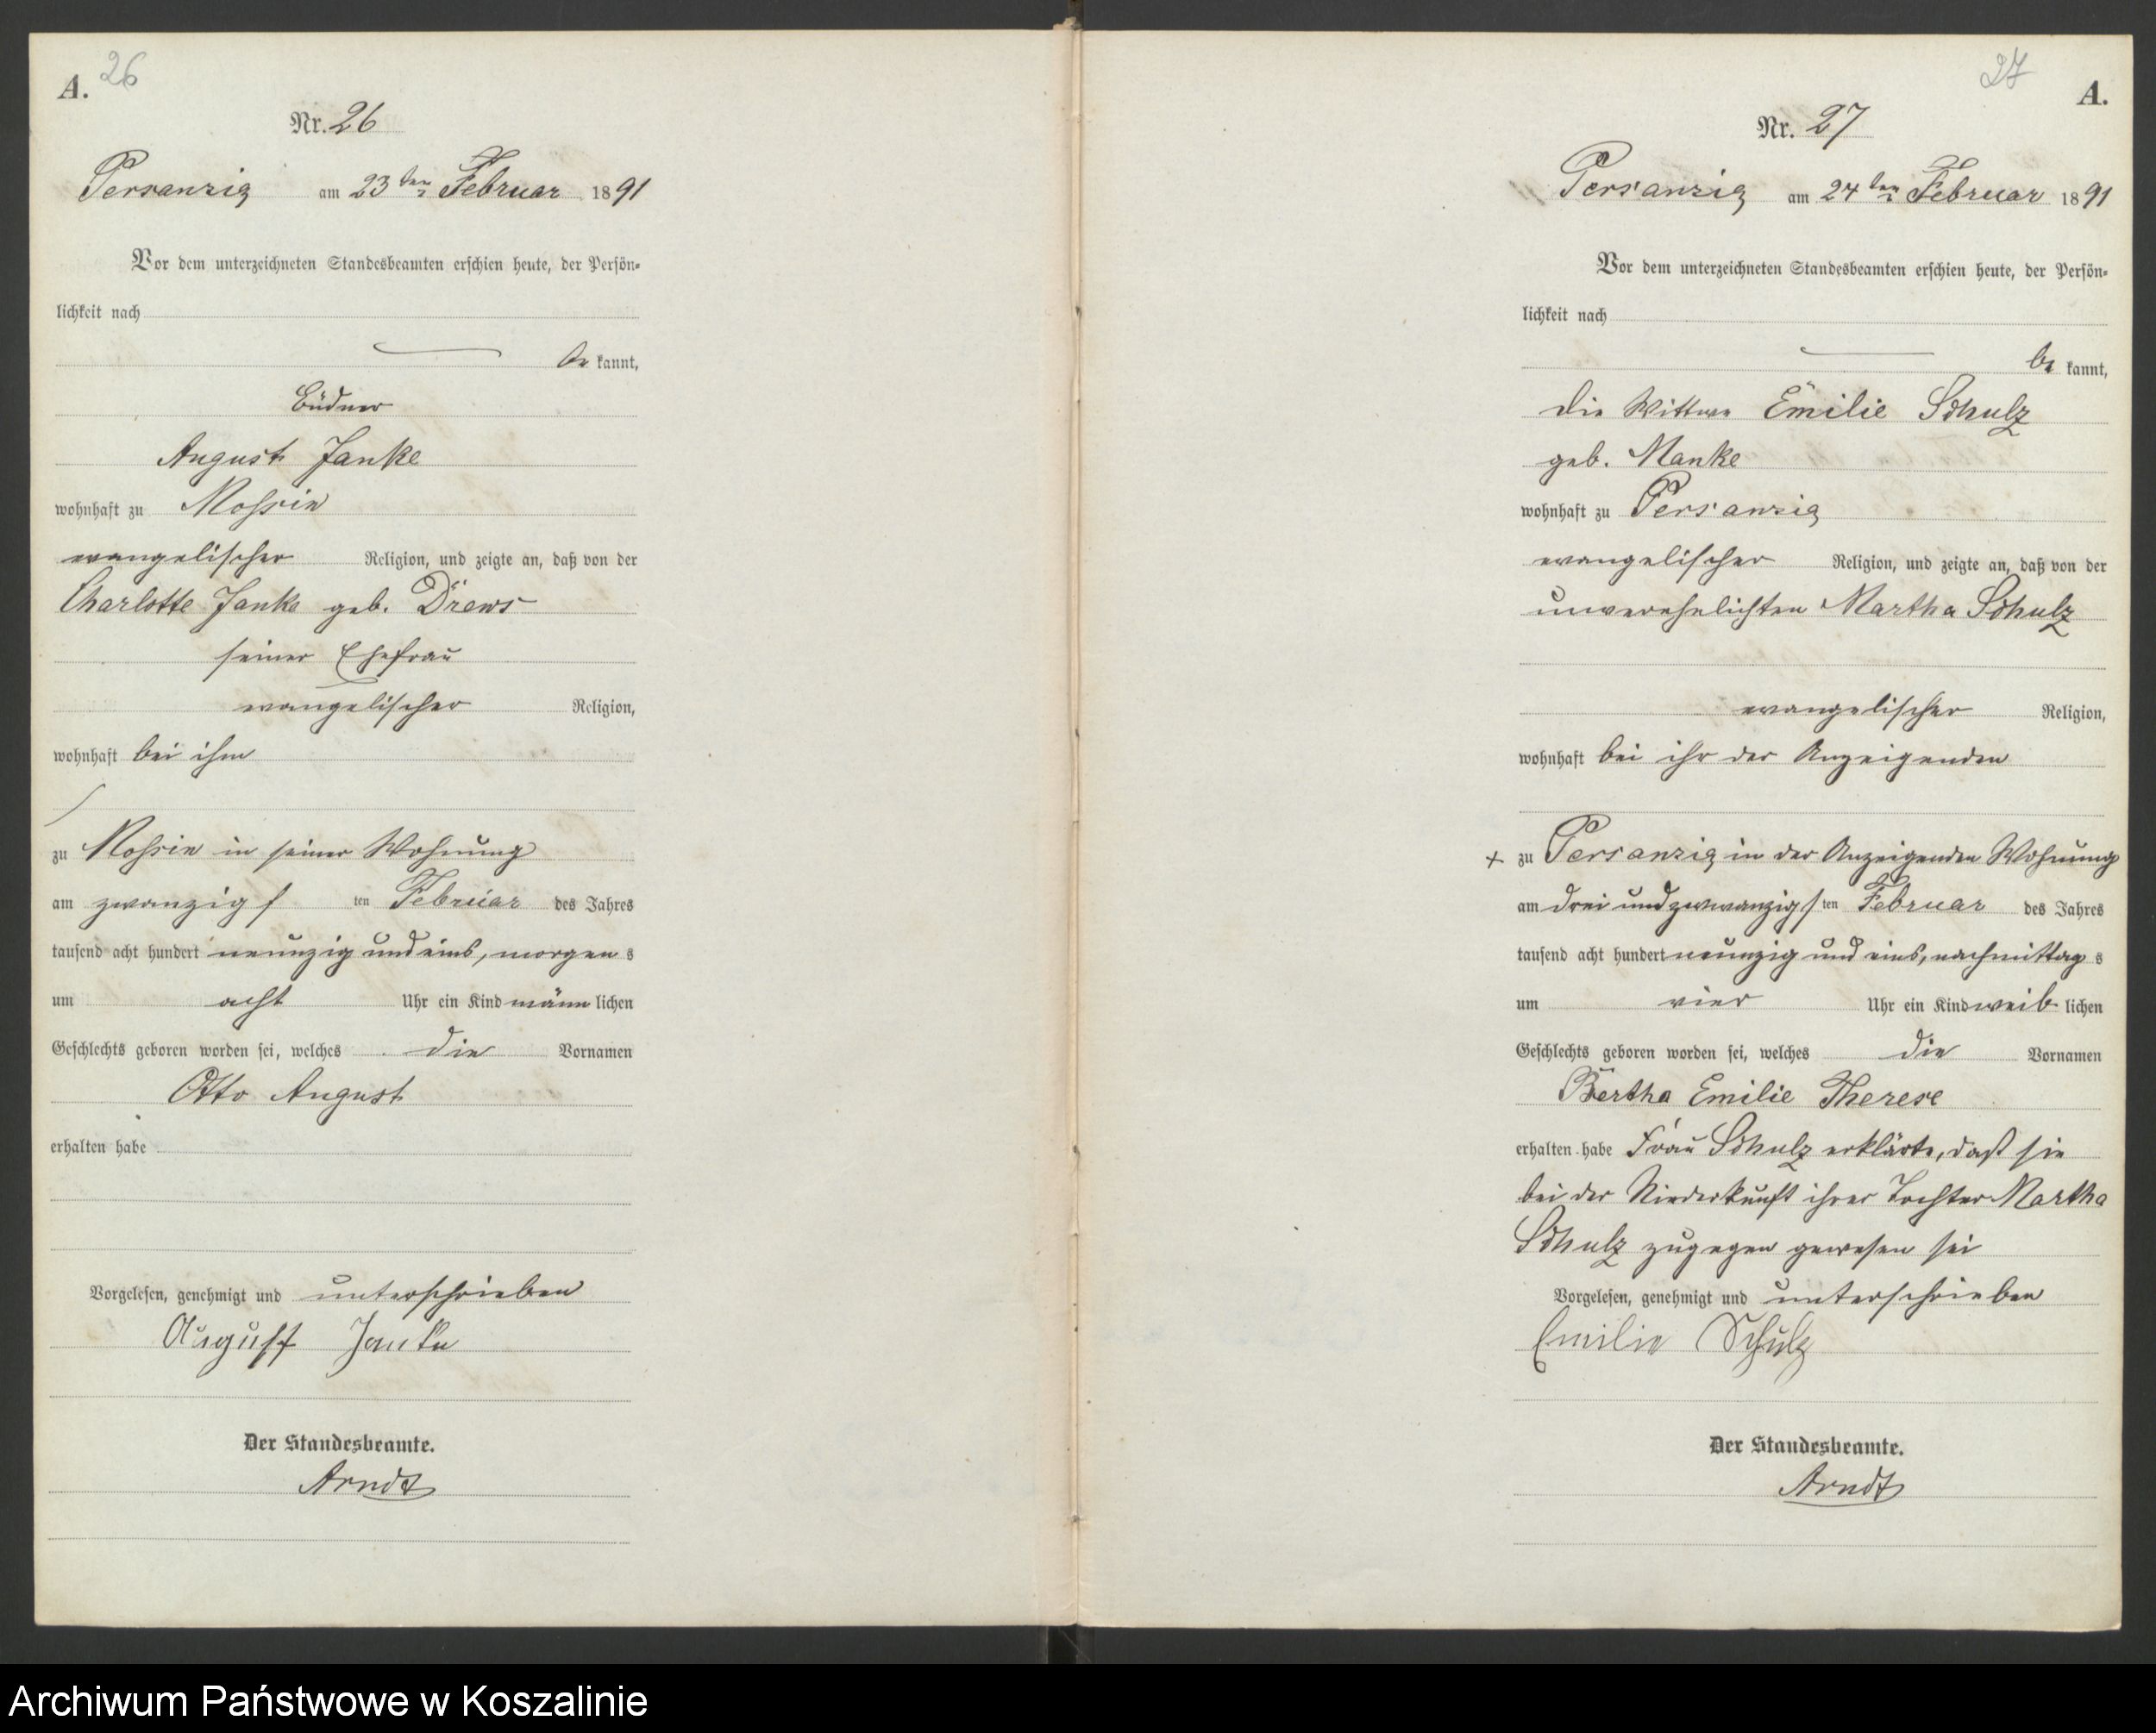 A. 26
Nr. 26
Persanzig am 23ten Februar 1891
Vor dem unterzeichneten Standesbeamten erschien heute, der Persön-
lichkeit nach
be kannt,
Büdner
August Janke
wohnhaft zu Mossin
evangelischer Religion, und zeigte an, daß von der
Charlotte Janke geb. Drews
seiner Ehefrau
evangelischer Religion,
wohnhaft bei ihm
zu Mossin in seiner Wohnung
am zwanzigsten Februar des Jahres
tausend acht hundert neunzig und eins, morgens
um acht Uhr ein Kind männlichen
Geschlechts geboren worden sei, welches die Vornamen
Otto August
erhalten habe
Vorgelesen, genehmigt und unterschrieben
August Janke
Der Standesbeamte.
Arndt
27 A.
Nr. 27
Persanzig am 24ten Februar 1891
Vor dem unterzeichneten Standesbeamten erschien heute, der Persön-
lichkeit nach
be kannt,
die Wittwe Emilie Schulz
geb. Manke
wohnhaft zu Persanzig
evangelischer Religion, und zeigte an, daß von der
unverehelichten Martha Schulz
evangelischer Religion,
wohnhaft bei ihr der Anzeigenden
+ zu Persanzig in der Anzeigenden Wohnung
am drei und zwanzigsten Februar des Jahres
tausend acht hundert neunzig und eins, nachmittags
um vier Uhr ein Kind weiblichen
Geschlechts geboren worden sei, welches die Vornamen
Bertha Emilie Therese
erhalten habe Frau Schulz erklärte, daß sie
bei der Niederkunft ihrer Tochter Martha
Schulz zugegen gewesen sei
Vorgelesen, genehmigt und unterschrieben
Emilie Schulz
Der Standesbeamte.
Arndt
Archiwum Państwowe w Koszalinie